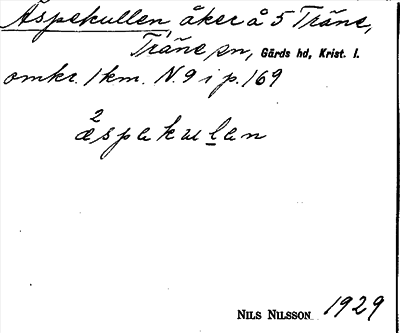 Äspekullen åker å 5 Träne,
Träne sn, Gärds hd, Krist. l.
omkr. 1 km. N. 9 i p. 169
2
æspekulen
NILS NILSSON 1929